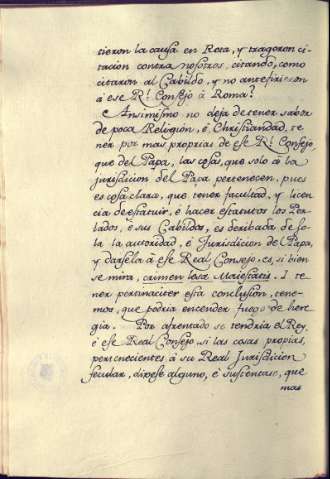 tieron la causa en Rota, y tragoron ci-
tacion contra nosotros, citando, como
citaron al Cabildo, y no antefirieron
á ese Rl. Consejo á Roma?
Ansimismo no deja de tener sabor
de poca Religion, é Christiandad, te
ner por mas proprias de ese Rl. Consejo,
que del Papa, las cosas, que solo á la
jurisdicion del Papa pertenecen, pues
es cosa clara, que tener facultad, y licen
cia de estatuir, e hacer estatutos los Per-
lados, é sus Cabildos, es deribada de so-
la la autoridad, é Jurisdicion del Papa,
y darsela á ese Real Consejo, es, si bien
se mira, crimen lesæ Maiestatis. I te
ner pertinaciter esta conclusion, tene-
mos, que podria encender fuego de here
gia. Por afrentado se tendria el Rey,
é ese Real Consejo, si las cosas propias,
pertenecientes á su Real Jurisdicion
secular, dijese alguno, é sustentase, que
mas